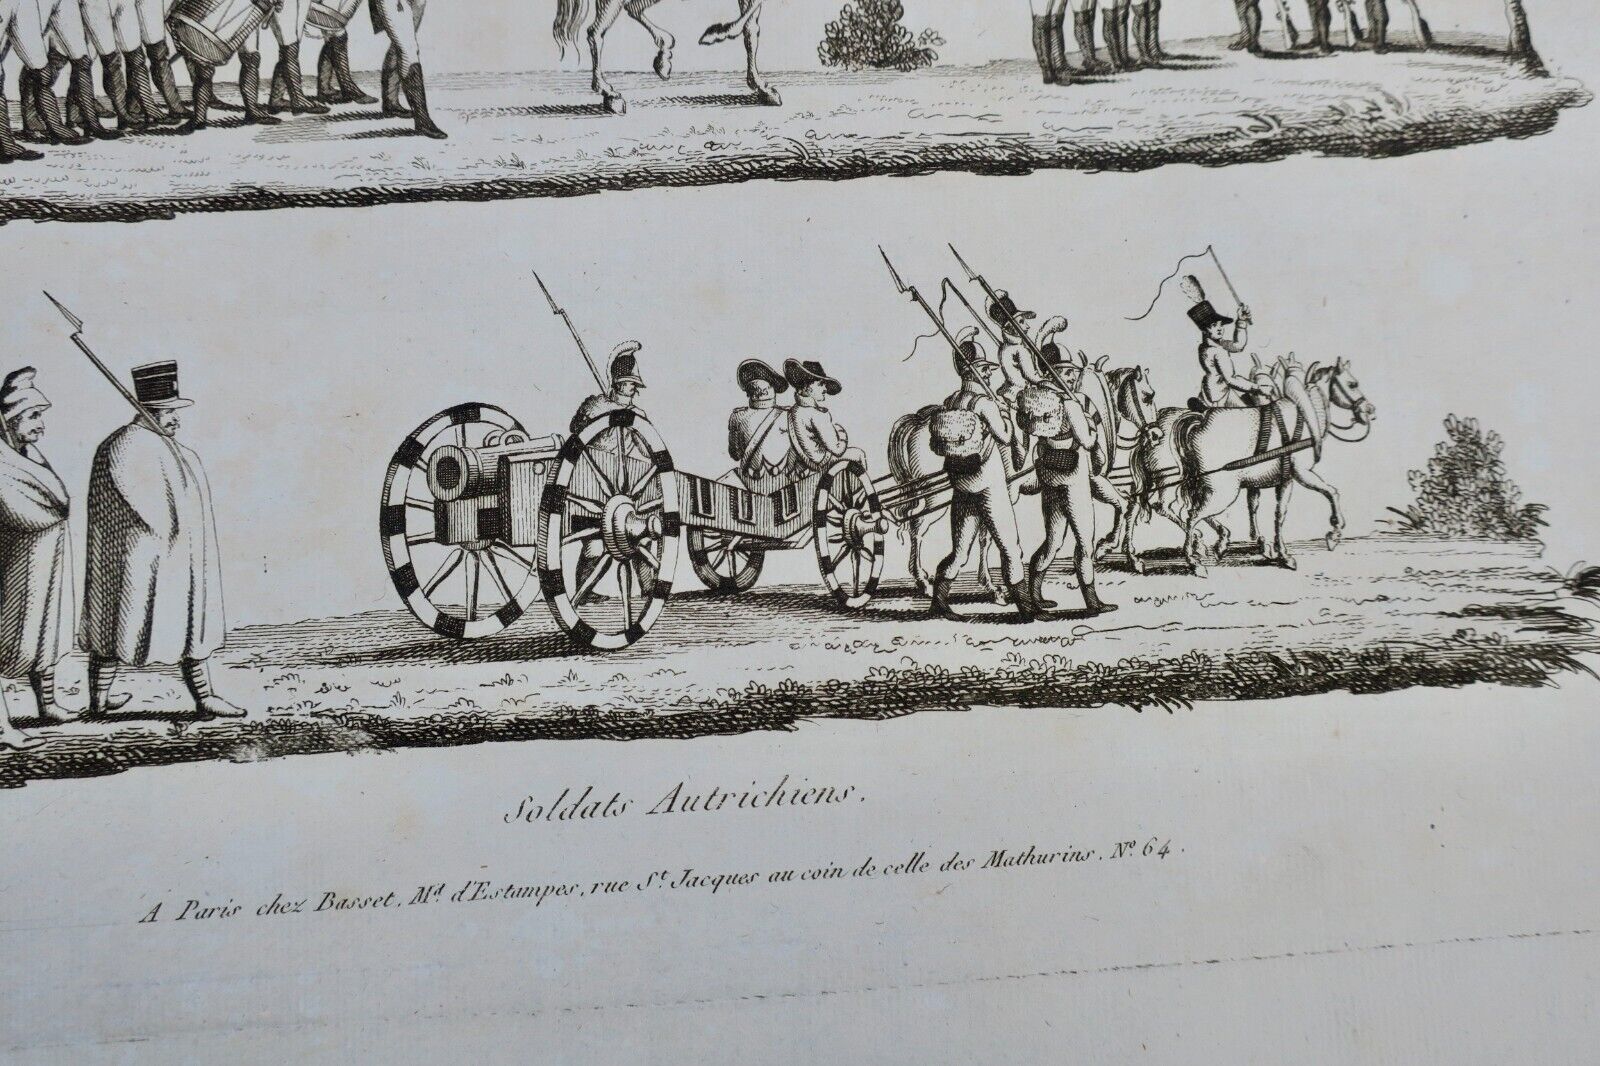 Soldats Autrichiens.
A Paris chez Basset, Md. d'Estampes, rue St. Jacques au coin de celle des Mathurins, No. 64.